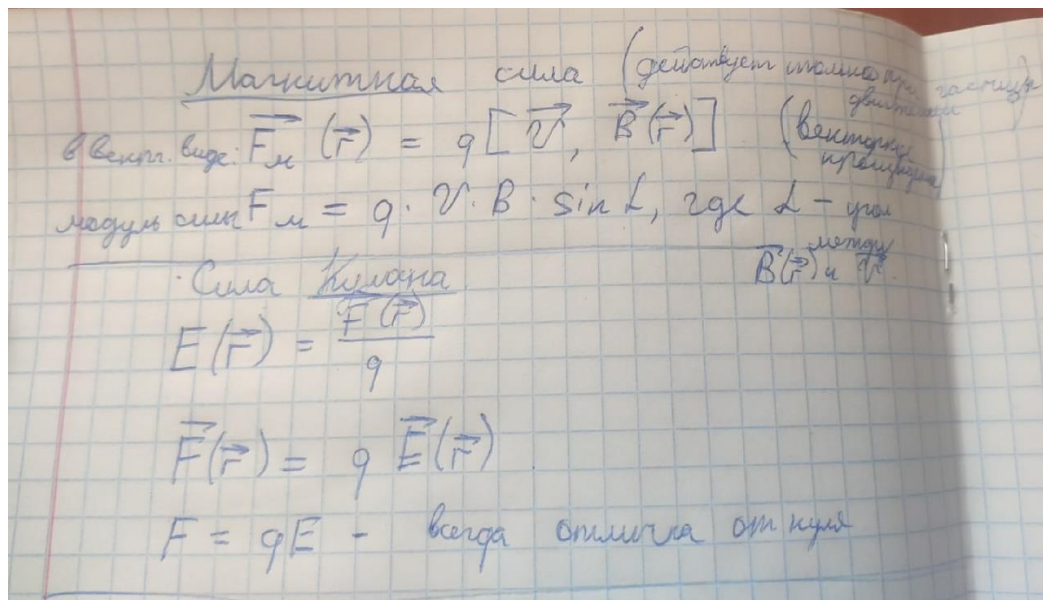 Магнитная сила (действует только при движении частицы)
в вект. виде: F⃗м (r⃗) = q [V⃗, B⃗(r⃗)] (векторное произведение)
модуль силы Fм = q · V · B · sin L, где L - угол между B⃗(r⃗) и V⃗
Сила Кулона
E(r⃗) = F⃗(r⃗) / q
F⃗(r⃗) = q E⃗(r⃗)
F = qE - всегда отлична от нуля